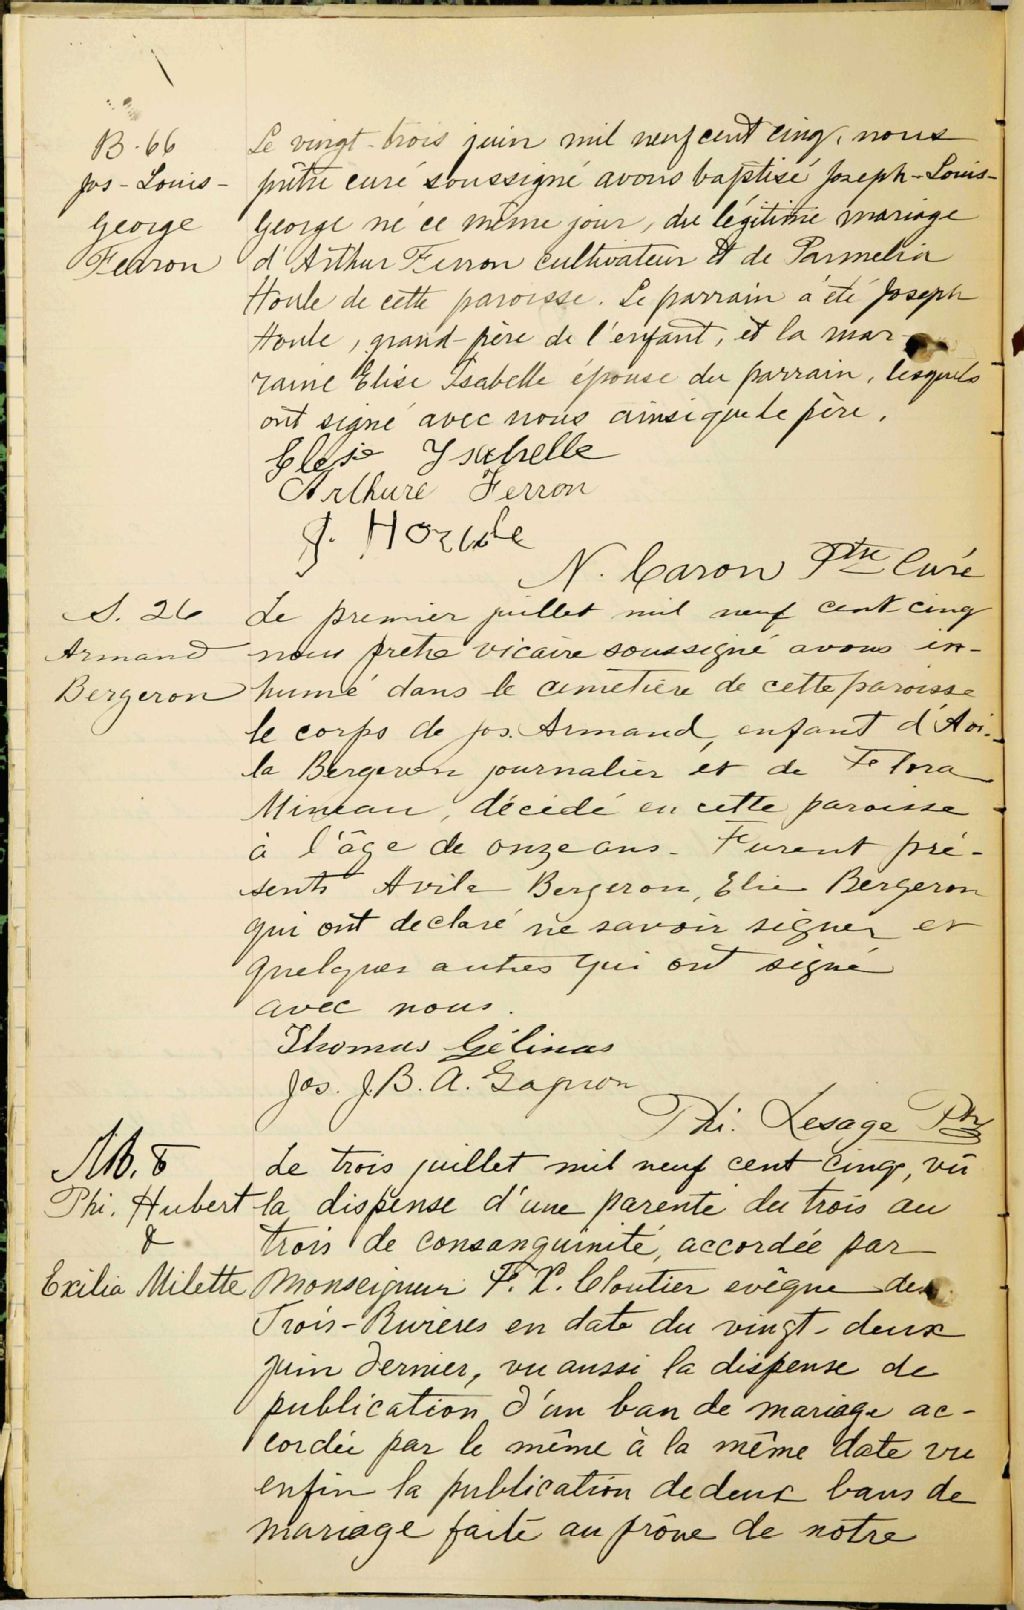 B. 66
Jos-Louis-
George
Ferron
Le vingt-trois juin mil neuf cent cinq, nous
prêtre curé soussigné avons baptisé Joseph-Louis-
George né ce même jour, du légitime mariage
d'Arthur Ferron cultivateur et de Parmelia
Houle de cette paroisse. Le parrain a été Joseph
Houle, grand-père de l'enfant, et la mar-
raine Elise Isabelle épouse du parrain, lesquels
ont signé avec nous ainsi que le père.
Elesie Ysabelle
Arthure Ferron
J. Houle
N. Caron Ptre Curé
S. 26
Armand
Bergeron
Le premier juillet mil neuf cent cinq
nous prêtre vicaire soussigné avons in-
humé dans le cimetière de cette paroisse
le corps de Jos. Armand, enfant d'Avi-
la Bergeron journalier et de Flora
Mineau, décédé en cette paroisse
à l'âge de onze ans. Furent pré-
sents Avila Bergeron, Elie Bergeron
qui ont declaré ne savoir signer et
quelques autres qui ont signé
avec nous.
Thomas Gélinas
Jos. J.B. A. Gagnon
Phi. Lesage Ptre
M. 8
Phi. Hubert
&
Exilia Milette
Le trois juillet mil neuf cent cinq, vu
la dispense d'une parenté du trois au
trois de consanguinité, accordée par
Monseigneur F. X. Cloutier evêque des
Trois-Rivières en date du vingt-deux
juin dernier, vu aussi la dispense de
publication d'un ban de mariage ac-
cordée par le même à la même date vu
enfin la publication de deux bans de
mariage faite au prône de notre